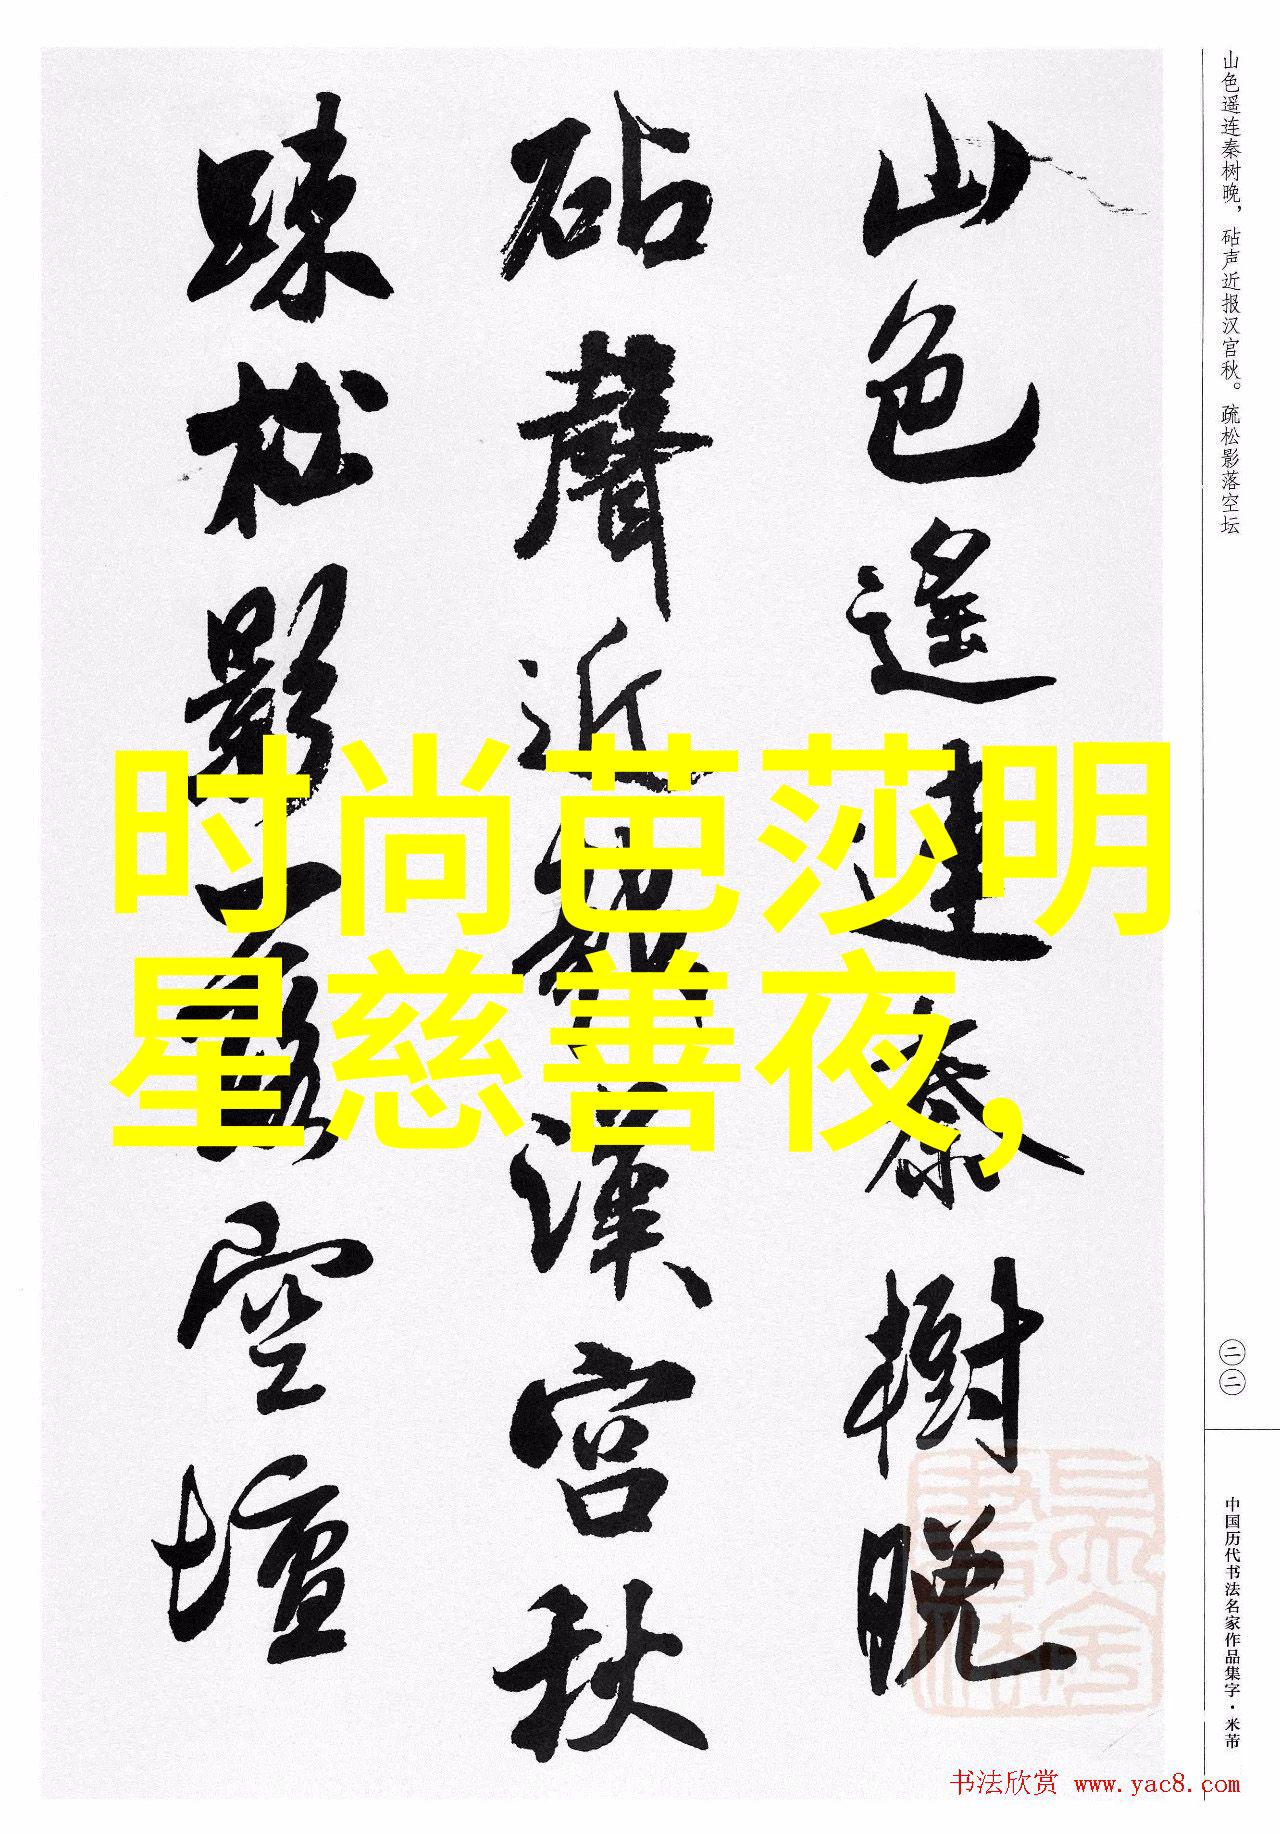 山色遥连秦树晚，砧声近报汉宫秋。疏松影落空坛
二二
中国历代书法名家作品集字·米芾
山色遙連秦樹晚
砧聲近報漢宮秋
踈松影落空壇
时尚芭莎明
星慈善夜，
书法欣赏 www.yac8.com